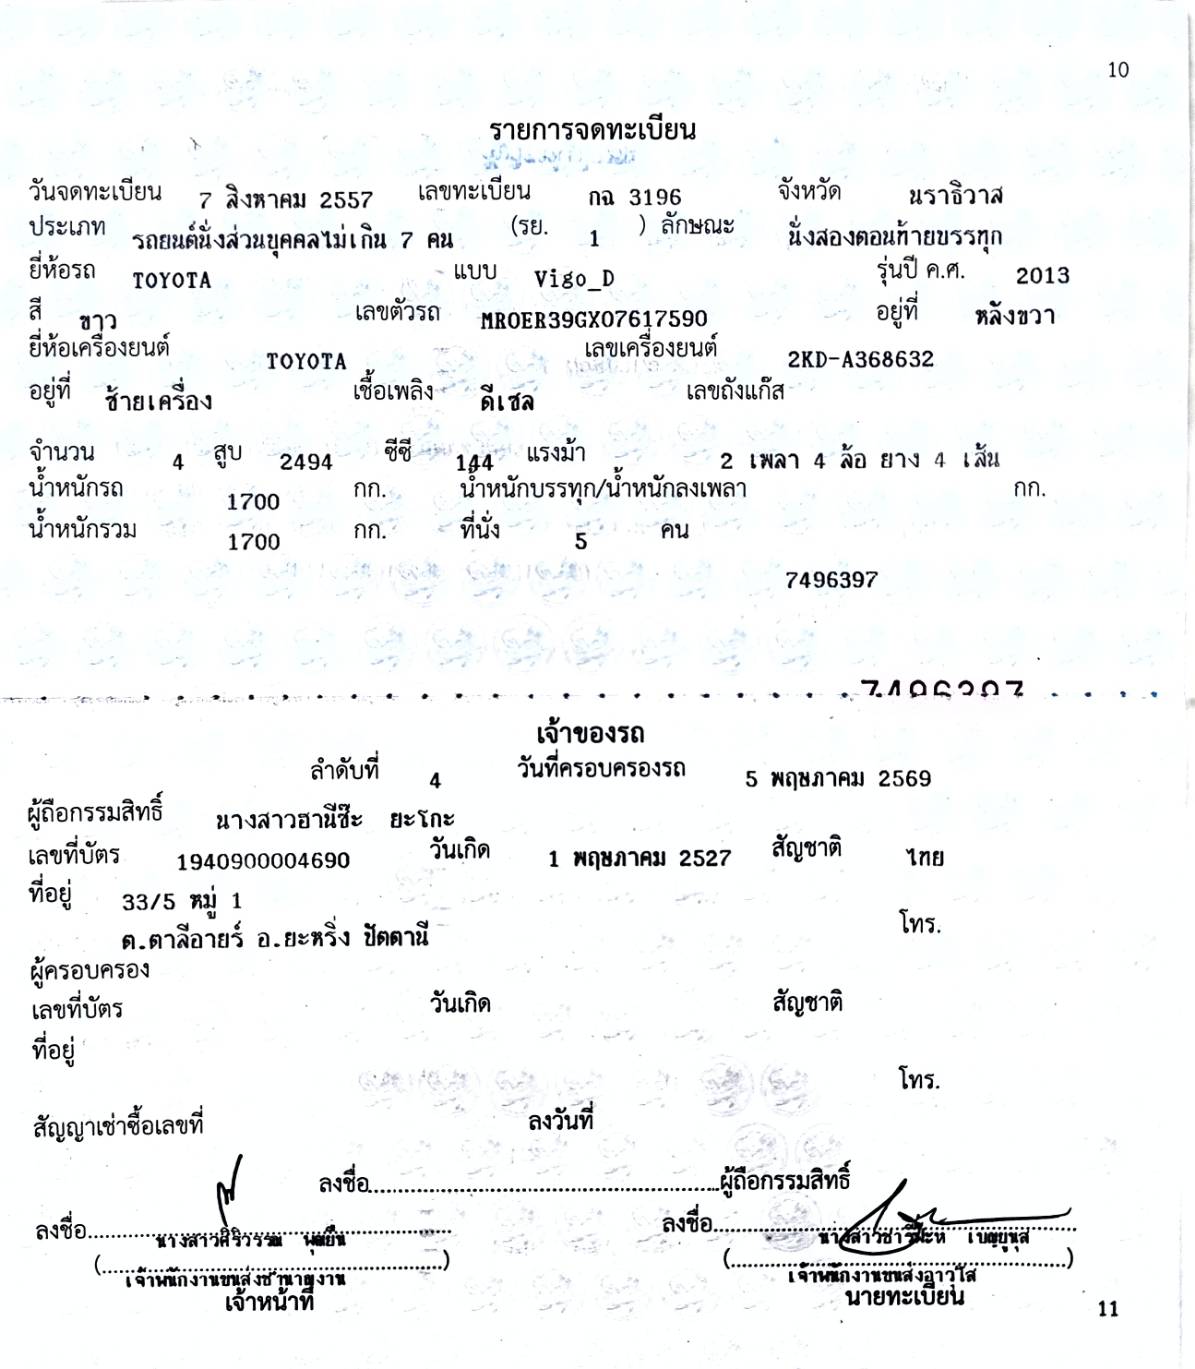 10
รายการจดทะเบียน
วันจดทะเบียน 7 สิงหาคม 2557 เลขทะเบียน กฉ 3196 จังหวัด นราธิวาส
ประเภท รถยนต์นั่งส่วนบุคคลไม่เกิน 7 คน (รย. 1 ) ลักษณะ นั่งสองตอนท้ายบรรทุก
ยี่ห้อรถ TOYOTA แบบ Vigo_D รุ่นปี ค.ศ. 2013
สี ขาว เลขตัวรถ MROER39GX07617590 อยู่ที่ หลังขวา
ยี่ห้อเครื่องยนต์ TOYOTA เลขเครื่องยนต์ 2KD-A368632
อยู่ที่ ซ้ายเครื่อง เชื้อเพลิง ดีเซล เลขถังแก๊ส
จำนวน 4 สูบ 2494 ซีซี 144 แรงม้า 2 เพลา 4 ล้อ ยาง 4 เส้น
น้ำหนักรถ 1700 กก. น้ำหนักบรรทุก/น้ำหนักลงเพลา กก.
น้ำหนักรวม 1700 กก. ที่นั่ง 5 คน
7496397
7496397
เจ้าของรถ
ลำดับที่ 4 วันที่ครอบครองรถ 5 พฤษภาคม 2569
ผู้ถือกรรมสิทธิ์ นางสาวฮานีซ๊ะ ยะโกะ
เลขที่บัตร 1940900004690 วันเกิด 1 พฤษภาคม 2527 สัญชาติ ไทย
ที่อยู่ 33/5 หมู่ 1
ต.ตาลีอายร์ อ.ยะหริ่ง ปัตตานี โทร.
ผู้ครอบครอง
เลขที่บัตร วันเกิด สัญชาติ
ที่อยู่
โทร.
สัญญาเช่าซื้อเลขที่ ลงวันที่
ลงชื่อ ผู้ถือกรรมสิทธิ์
ลงชื่อ ลงชื่อ
นางสาวศิริวรรณ
เจ้าพนักงานขนส่งชำนาญงาน เจ้าพนักงานขนส่งอาวุโส
เจ้าหน้าที่ นายทะเบียน
11